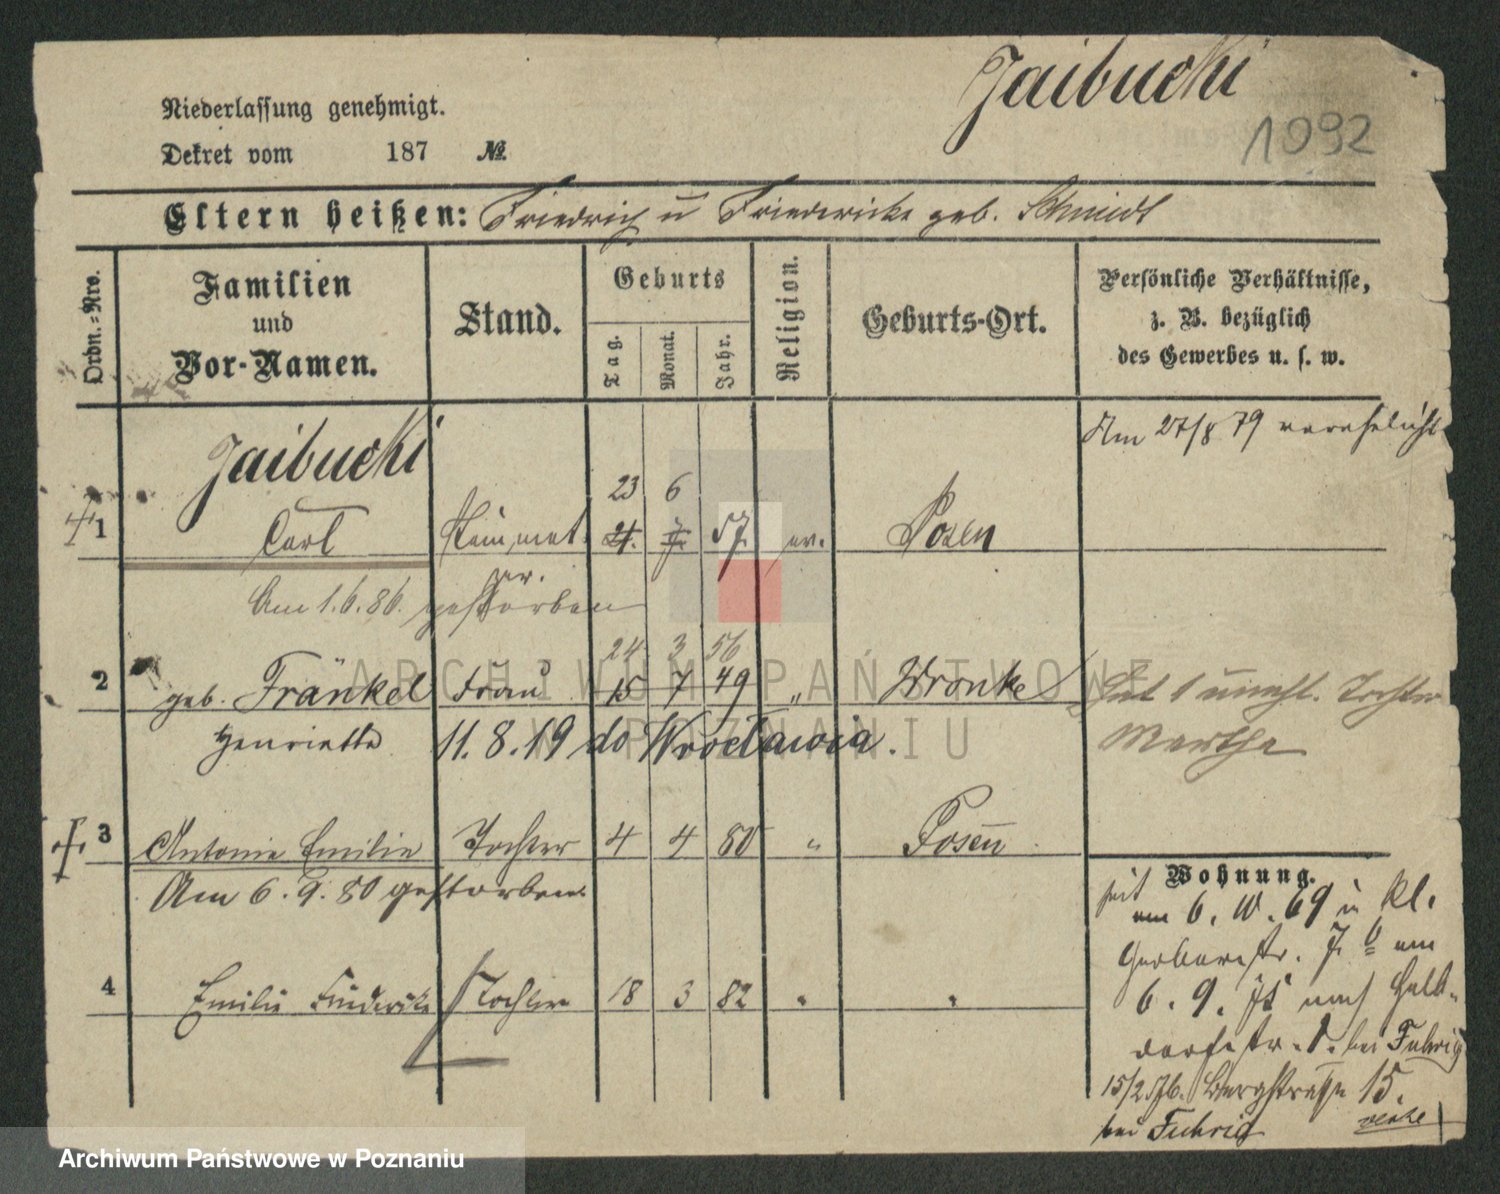 Jaibucki
1092
Niederlassung genehmigt.
Dekret vom 187 №
Eltern heißen: Friedrich u Friedericke geb. Schmidt
Ordn.-Nro.
Familien und Vor-Namen.
Stand.
Geburts
Tag.
Monat.
Jahr.
Religion.
Geburts-Ort.
Persönliche Verhältnisse,
z. B. bezüglich
des Gewerbes u. s. w.
Am 27/8 79 verehelicht
Jaibucki
23 6
1 Carl Steinmetz 24. 7. 57 ev. Posen
Am 1.6.86. gestorben
24 3 56
2 geb. Fränkel Frau 15 7 49 " Wronke Hat 1 unehl. Tochter
Henriette 11.8.19 do Wrocławia. Martha
3 Antonie Emilie Tochter 4 4 80 " Posen
Am 6.9.80 gestorben.
4 Emilie Friedericke Tochter 18 3 82 " "
Wohnung.
seit
am 6. 10. 69 in Kl.
Gerberstr. 7 b am
6. 9. 75 nach Halb-
dorfstr. bei Fuhrig
15/2 76. Bergstrasse 15.
bei Fuhrig
ARCHIWUM PAŃSTWOWE
W POZNANIU
Archiwum Państwowe w Poznaniu